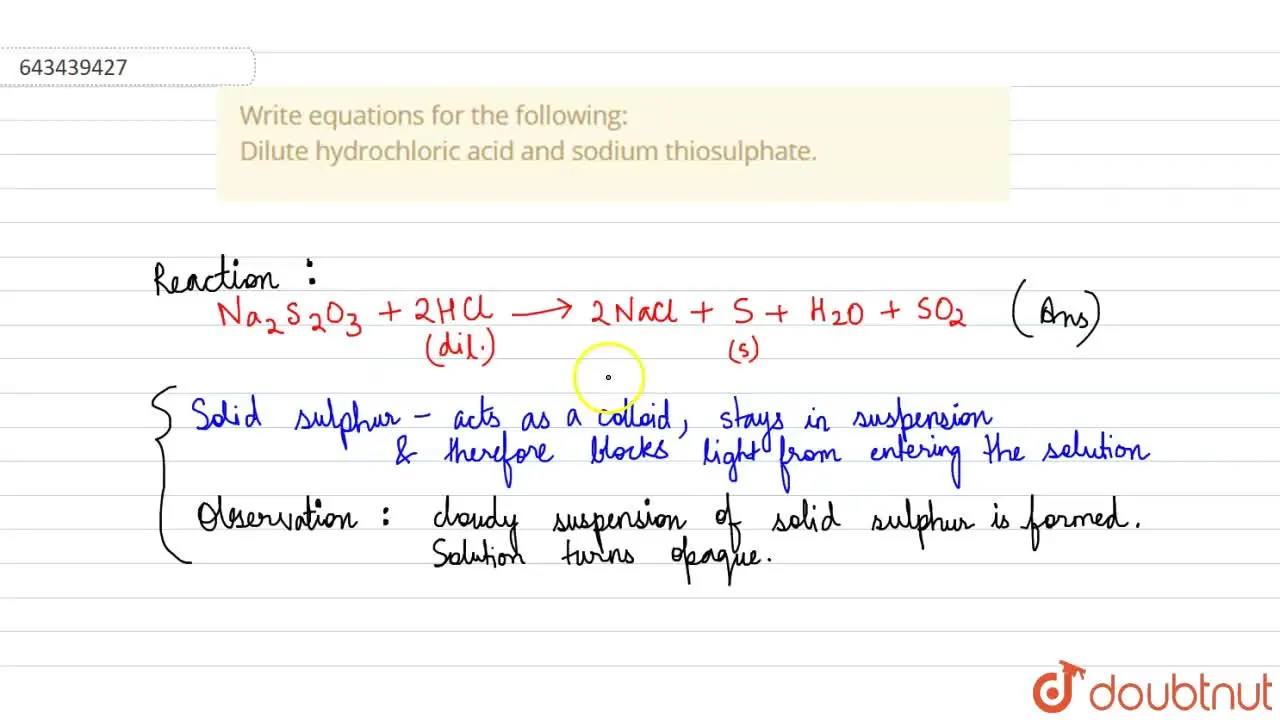 643439427
Write equations for the following:
Dilute hydrochloric acid and sodium thiosulphate.
Reaction :
Na₂S₂O₃ + 2HCl → 2NaCl + S + H₂O + SO₂ (Ans)
(dil.) (s)
Solid sulphur - acts as a colloid, stays in suspension
& therefore blocks light from entering the solution
Observation : cloudy suspension of solid sulphur is formed.
Solution turns opaque.
doubtnut